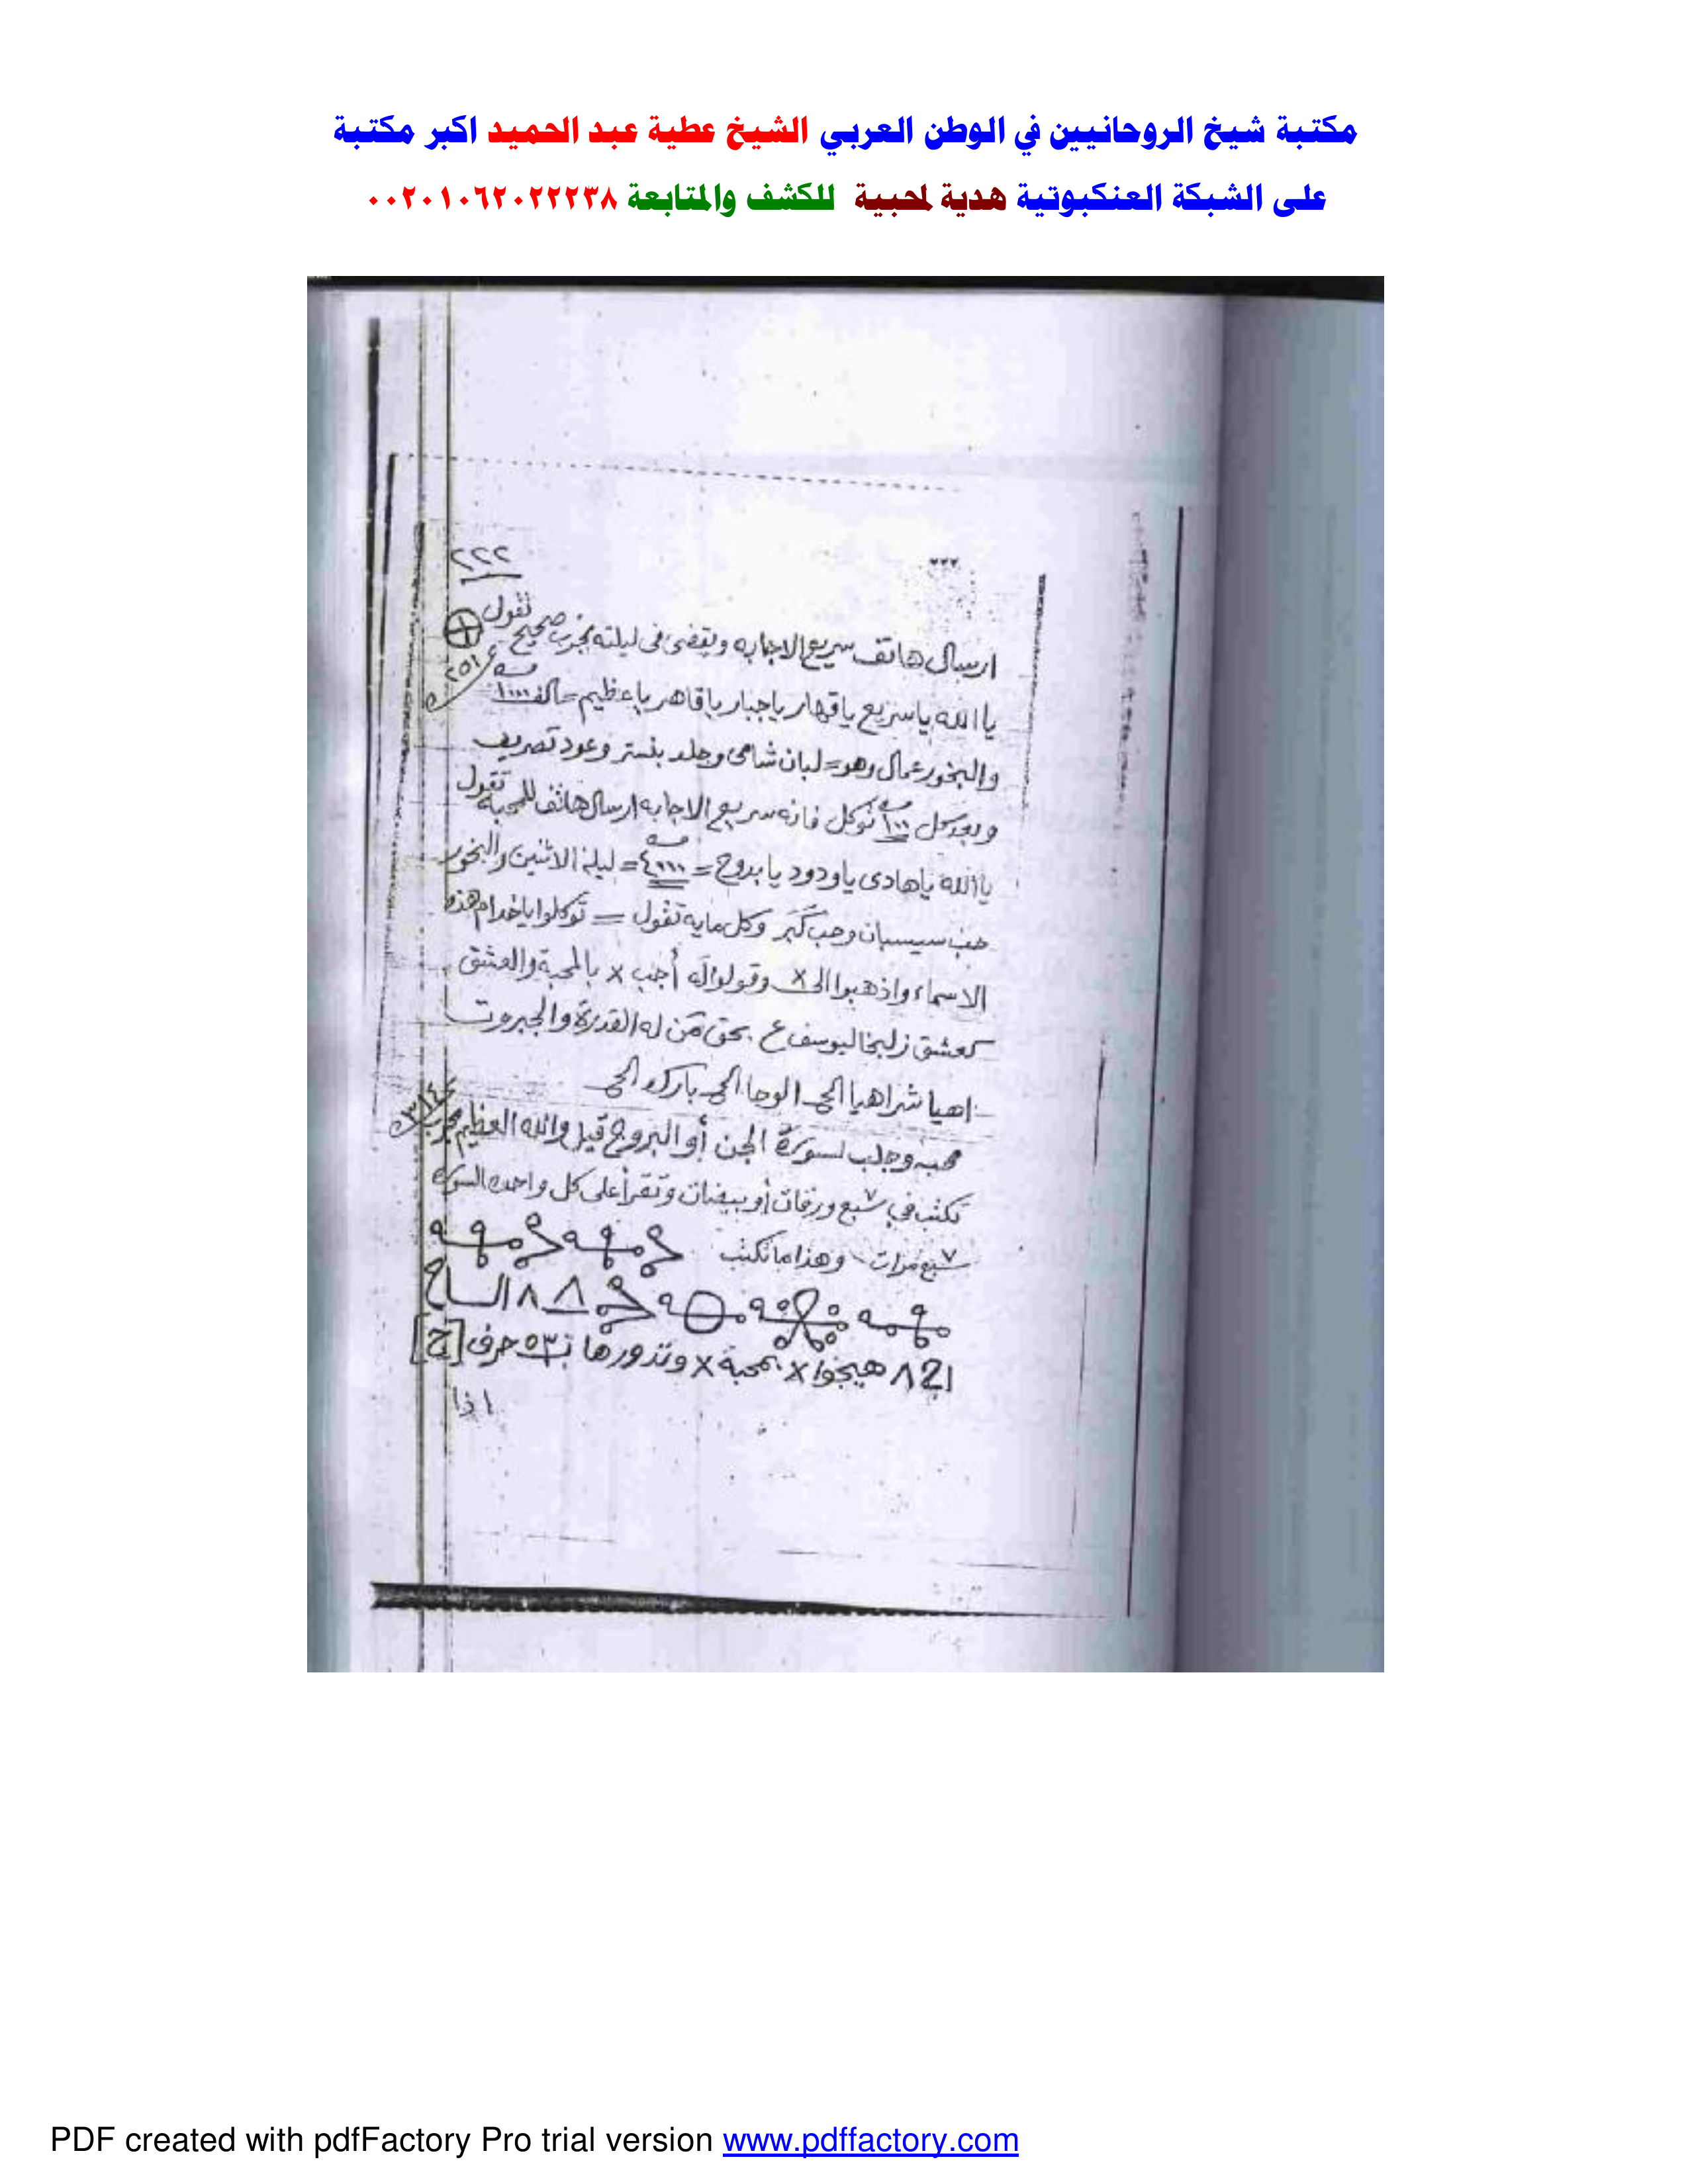 مكتبة شيخ الروحانيين في الوطن العربي الشيخ عطية عبد الحميد اكبر مكتبة
على الشبكة العنكبوتية هدية لمحبية للكشف والمتابعة ٠٠٢٠١٠٦٢٠٢٢٢٣٨
٢٢٢
ارسال هاتف سريع الاجابه ويقضى فى ليلته مجرب صحيح تقول
يا الله ياسريع ياقهار ياجبار ياقاهر ياعظيم = ١٠٠٠
والبخور عمال وهو = لبان شامى وجلد بنستر وعود تصريف
وبعد كل ١٠٠ توكل فانه سريع الاجابه ارسال هاتف للمحبه تقول
يا الله ياهادى ياودود يابدوح = = ليلة الاثنين والبخور
حب سيسبان وحب كبر وكل مايه تقول = توكلوا ياخدام هذه
الاسماء واذهبوا الى x وقولوا له أجب x بالمحبة والعشق
كعشق زليخا ليوسف ع بحق من له القدرة والجبروت
اهيا شراهيا
محبه وجلب لسورة الجن أو البروج قيل والله العظيم مجرب
تكتب فى سبع ورقات أو بيضات وتقرأ على كل واحده السورة
سبع مرات وهذا ما تكتب
هيجوا x بمحبة x وتزورها حرف [ج]
اذا
PDF created with pdfFactory Pro trial version www.pdffactory.com